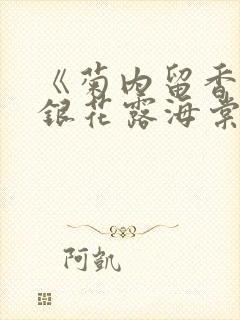 《菊内留香
銀花露海棠
阿凱